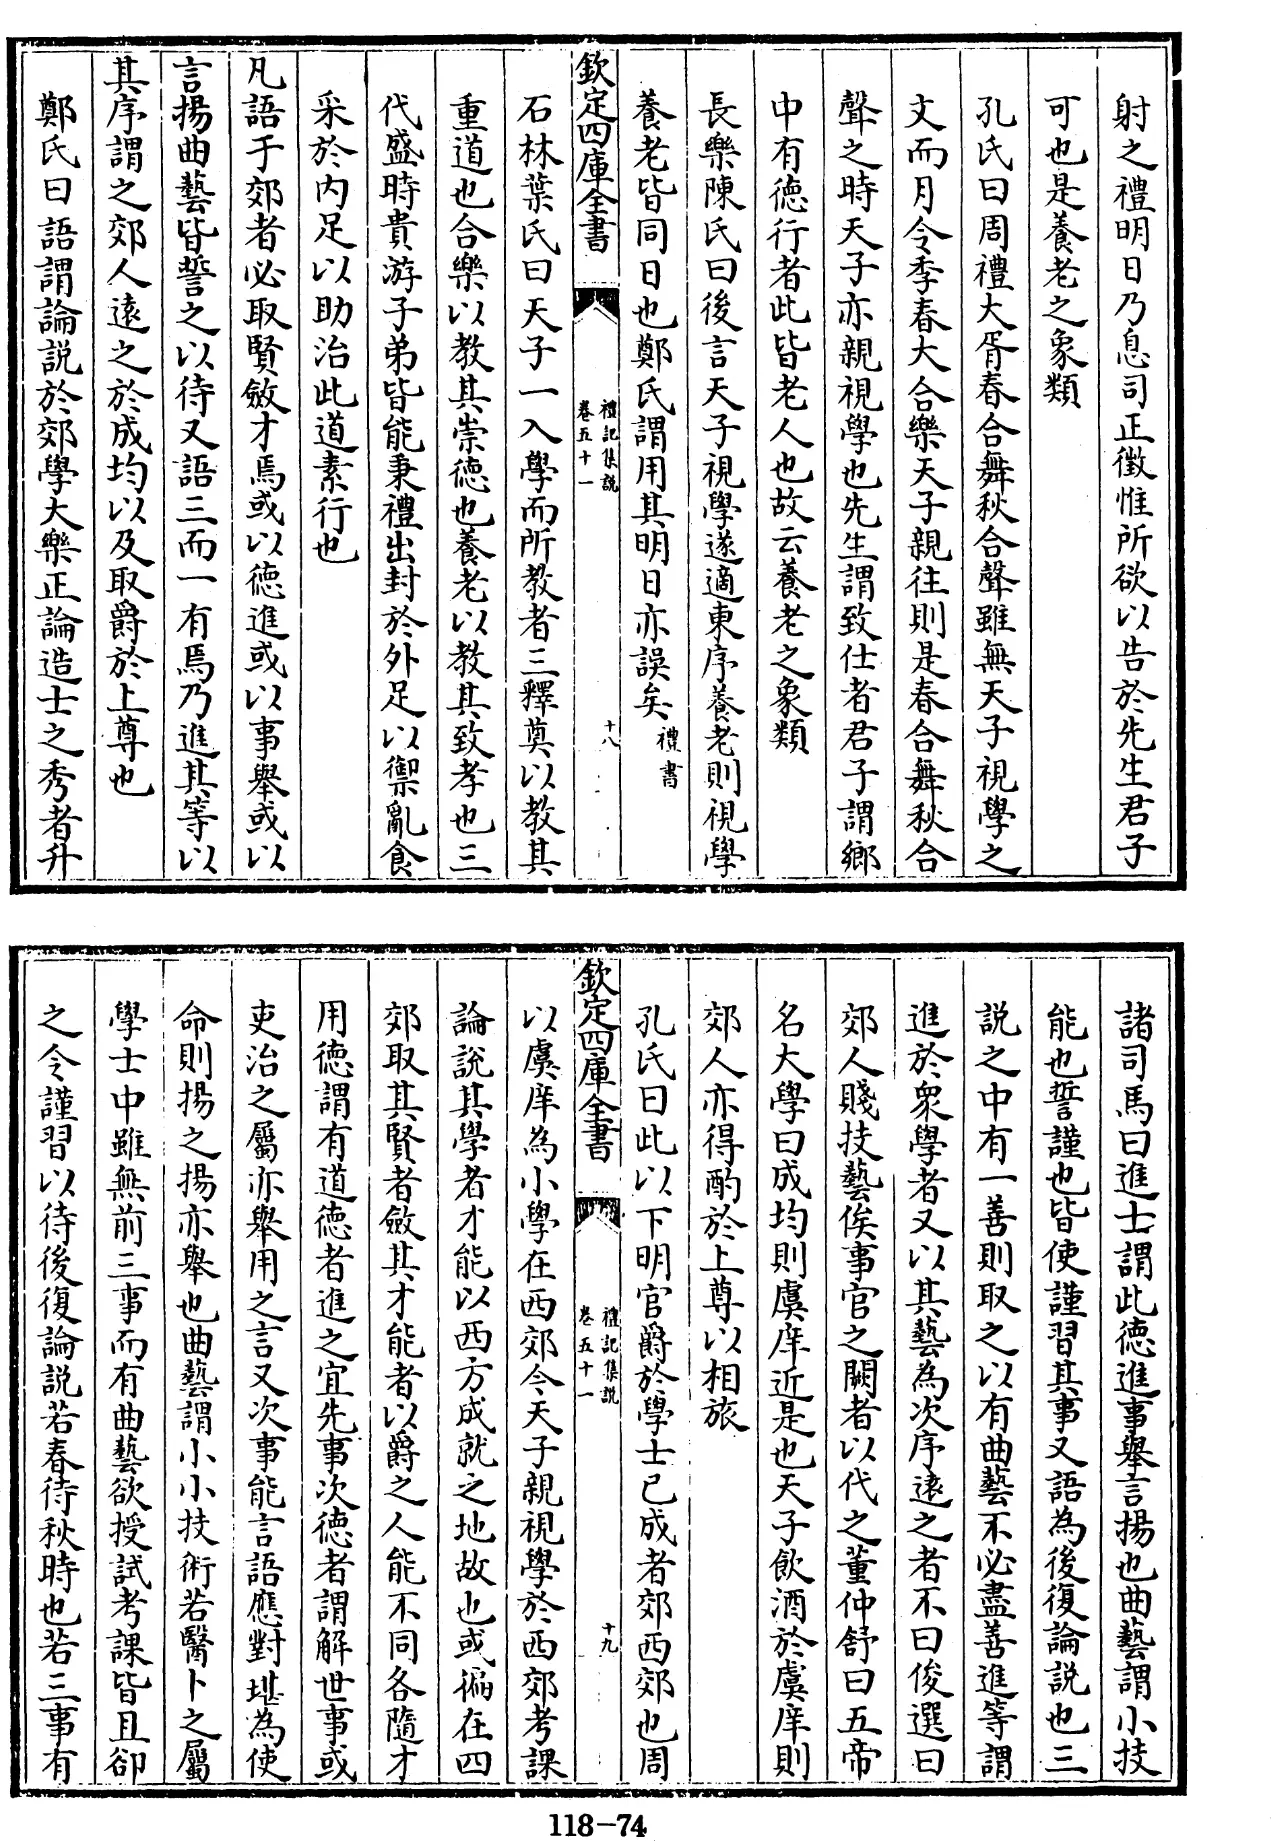 射之禮明日乃息司正徵惟所欲以告於先生君子
可也是養老之象類
孔氏曰周禮大胥春合舞秋合聲雖無天子視學之
文而月令季春大合樂天子親往則是春合舞秋合
聲之時天子亦親視學也先生謂致仕者君子謂鄉
中有德行者此皆老人也故云養老之象類
長樂陳氏曰後言天子視學遂適東序養老則視學
養老皆同日也鄭氏謂用其明日亦誤矣禮書
欽定四庫全書
禮記集說
卷五十一
十八
石林葉氏曰天子一入學而所教者三釋奠以教其
重道也合樂以教其崇德也養老以教其致孝也三
代盛時貴游子弟皆能秉禮出封於外足以禦亂食
采於內足以助治此道素行也
凡語于郊者必取賢斂才焉或以德進或以事舉或以
言揚曲藝皆誓之以待又語三而一有焉乃進其等以
其序謂之郊人遠之於成均以及取爵於上尊也
鄭氏曰語謂論說於郊學大樂正論造士之秀者升
諸司馬曰進士謂此德進事舉言揚也曲藝謂小技
能也誓謹也皆使謹習其事又語為後復論說也三
說之中有一善則取之以有曲藝不必盡善進等謂
進於衆學者又以其藝為次序遠之者不曰俊選曰
郊人賤技藝俟事官之闕者以代之董仲舒曰五帝
名大學曰成均則虞庠近是也天子飲酒於虞庠則
郊人亦得酌於上尊以相旅
孔氏曰此以下明官爵於學士已成者郊西郊也周
欽定四庫全書
禮記集說
卷五十一
十九
以虞庠為小學在西郊今天子親視學於西郊考課
論說其學者才能以西方成就之地故也或徧在四
郊取其賢者斂其才能者以爵之人能不同各隨才
用德謂有道德者進之宜先事次德者謂解世事或
吏治之屬亦舉用之言又次事能言語應對堪為使
命則揚之揚亦舉也曲藝謂小小技術若醫卜之屬
學士中雖無前三事而有曲藝欲授試考課皆且卻
之令謹習以待後復論說若春待秋時也若三事有
118-74